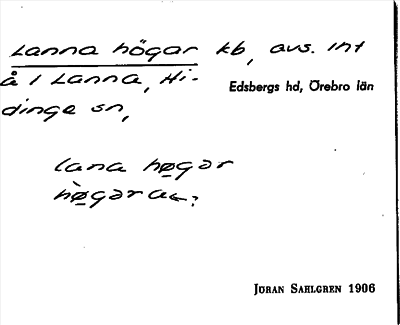 Lanna högar kb, avs. int
å i Lanna, Hi-
dinge sn,
Edsbergs hd, Örebro län
lana høgar
høgara
Jöran Sahlgren 1906